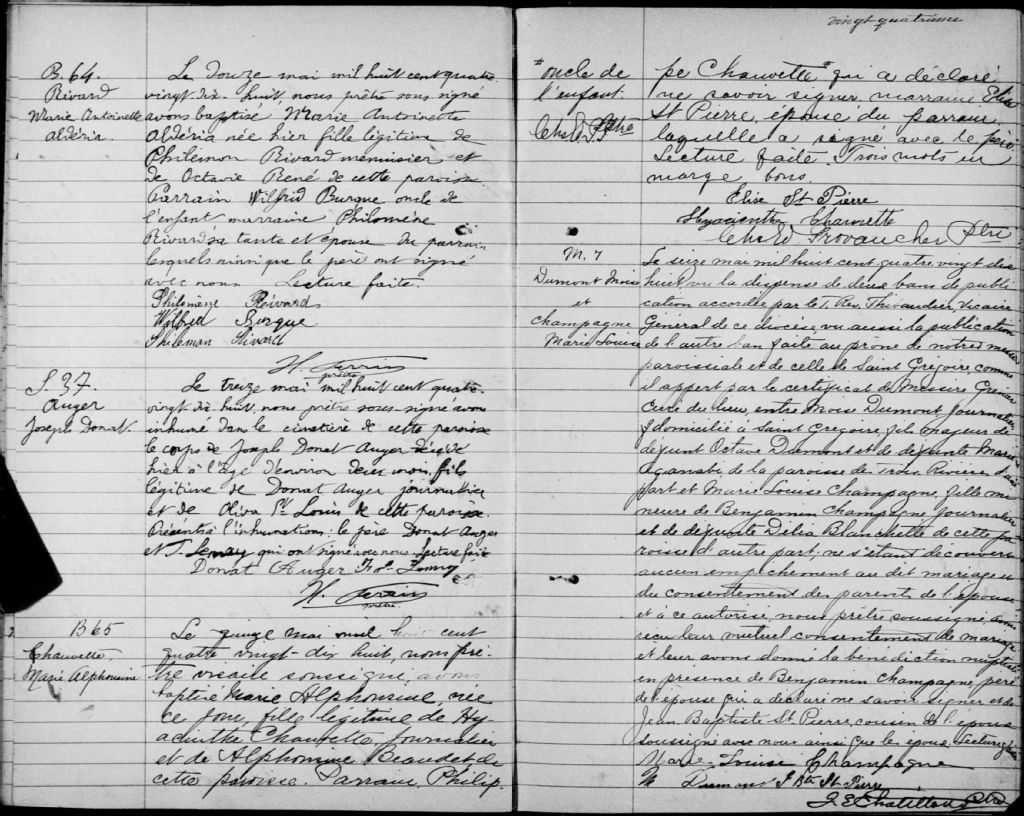 B. 64.
Rivard
Marie Antoinette
Aldéria
Le douze mai mil huit cent quatre
vingt dix-huit nous prêtre sous signé
avons baptisé Marie Antoinette
Aldéria née hier fille légitime de
Philémon Rivard menuisier et
de Octavie René de cette paroisse.
Parrain Wilfrid Burque oncle de
l'enfant marraine Philomène
Rivard sa tante et épouse du parrain
lesquels ainsi que le père ont signé
avec nous. Lecture faite.
Philomène Rivard
Wilfrid Burque
Philémon Rivard
H. prêtre
S. 37.
Auger
Joseph Donat.
Le treize mai mil huit cent quatre
vingt dix huit, nous prêtre sous-signé avons
inhumé dans le cimetière de cette paroisse
le corps de Joseph Donat Auger décédé
hier à l'âge d'environ deux mois, fils
légitime de Donat Auger journalier
et de Oliva St Louis de cette paroisse.
Présents à l'inhumation: le père Donat Auger
et J. Lemay qui ont signé avec nous. Lecture faite
Donat Auger
H. prêtre.
B 65
Chauvette,
Marie Alphonsine
Le quinze mai mil huit cent
quatre vingt-dix huit, nous prê-
tre vicaire soussigné, avons
baptisé Marie Alphonsine, née
ce jour, fille légitime de Hy-
acinthe Chauvette, journalier
et de Alphonsine Beaudet de
cette paroisse. Parrain, Philip-
vingt-quatrième
* oncle de
l'enfant.
Ptre
pe Chauvette * qui a déclaré
ne savoir signer, marraine Elise
St Pierre, épouse du parrain,
laquelle a signé avec le père
Lecture faite. Trois mots en
marge bons.
Elise St Pierre
Hyacinthe Chauvette
Provancher Ptre
M. 7
Dumont Moise
et
Champagne
Marie Louise
Le seize mai mil huit cent quatre vingt dix
huit, vu la dispense de deux bans de publi
cation accordée par le T. Rev. Thivaudier, Vicaire
Général de ce diocèse, vu aussi la publication
de l'autre ban faite au prône de notre messe
paroissiale et de celle de Saint Grégoire, comme
il appert par le certificat de Messire Grenier
Curé du lieu, entre Moise Dumont journalier
domicilié à Saint Grégoire, fils majeur de
défunt Octave Dumont et de défunte Marie
de la paroisse de Trois Rivières d'une
part et Marie Louise Champagne, fille mi
neure de Benjamin Champagne journalier
et de défunte Délia Blanchette de cette pa
roisse d'autre part; ne s'étant découvert
aucun empêchement au dit mariage
du consentement des parents de l'épouse
et à ce autorisé, nous prêtre soussigné avons
reçu leur mutuel consentement de mariage
et leur avons donné la bénédiction nuptiale
en présence de Benjamin Champagne, père
de l'épouse qui a déclaré ne savoir signer et de
Jean Baptiste St Pierre, cousin de l'époux
soussigné avec nous ainsi que les époux. Lecture faite
Marie Louise Champagne
M Dumont J Bte St Pierre
J. E. Chatillon Ptre